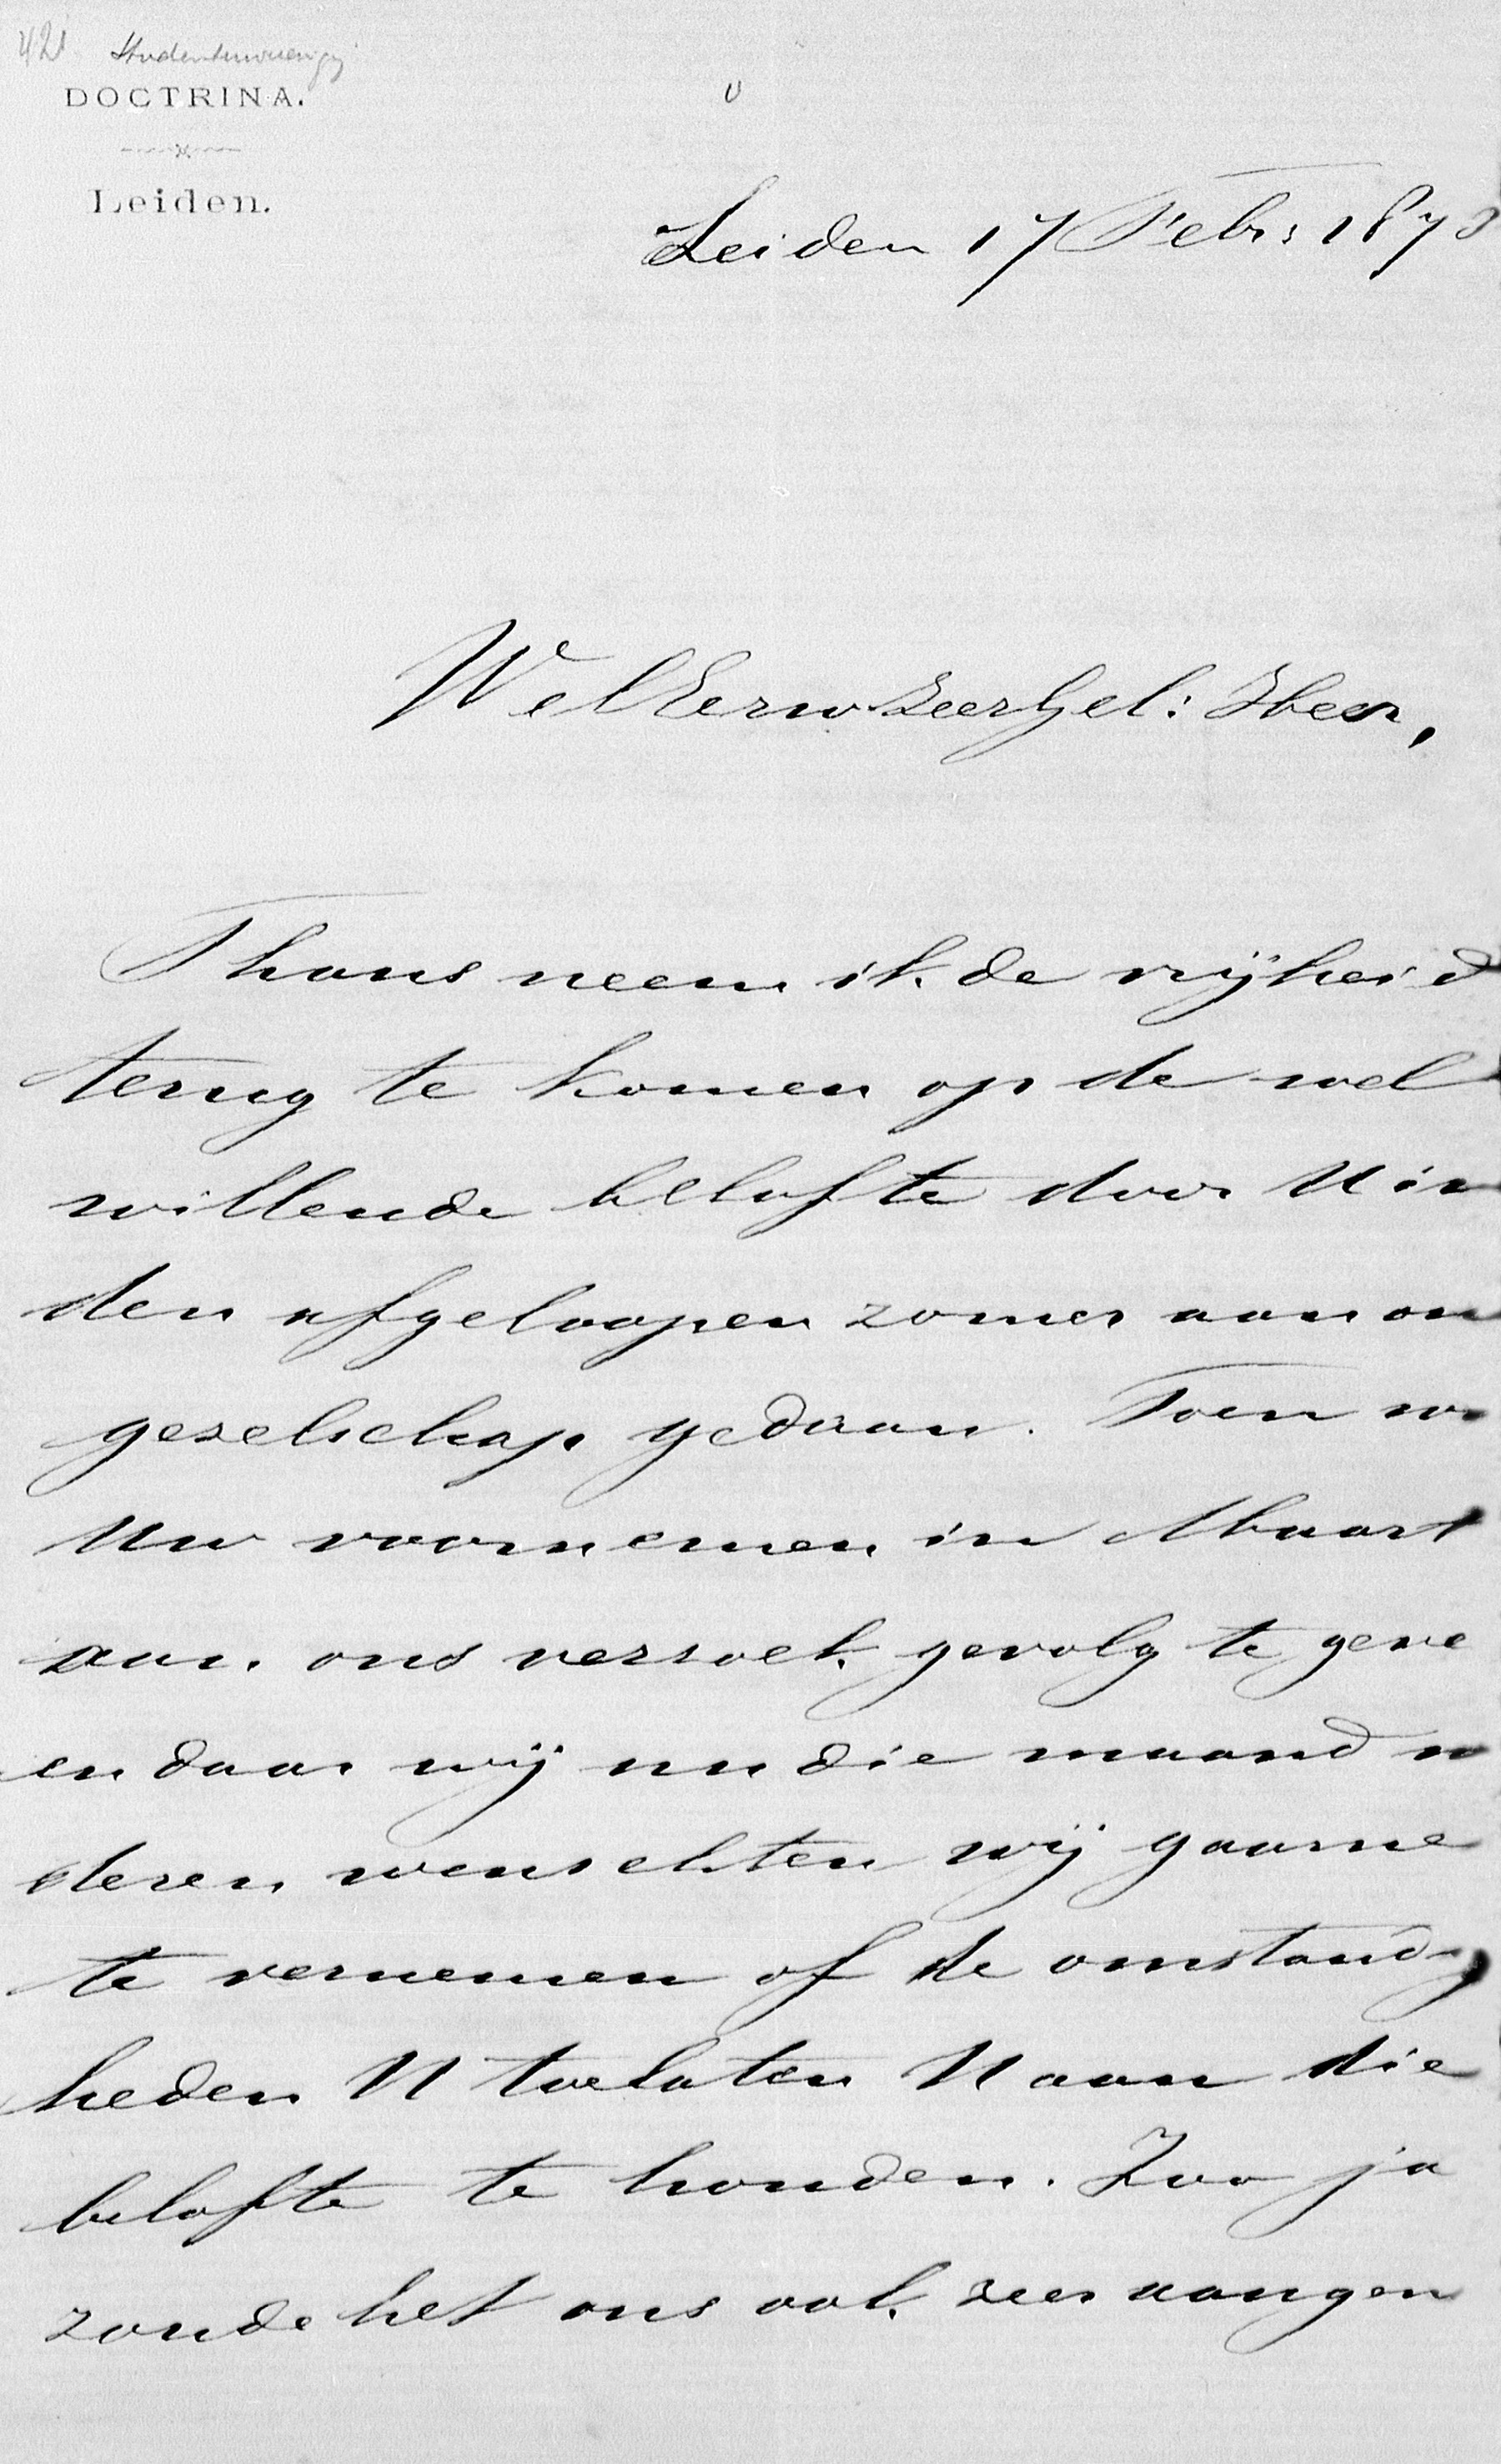 421 Studentenvereenig
DOCTRINA.
Leiden.
Leiden 17 Febr: 1873
WelEerwZeerGel: Heer,
Thans neem ik de vrijheid
terug te komen op de wel
willende belofte door U in
den afgeloopen zomer aan on
gezelschap gedaan. Toen w
Uw voornemen in Maart
aan ons verzoek gevolg te geve
en daar wij nu die maand n
deren wenschten wij gaarne
te vernemen of de omstandig
heden U toelaten U aan die
belofte te houden. Zoo ja
zoude het ons ook zeer aangen